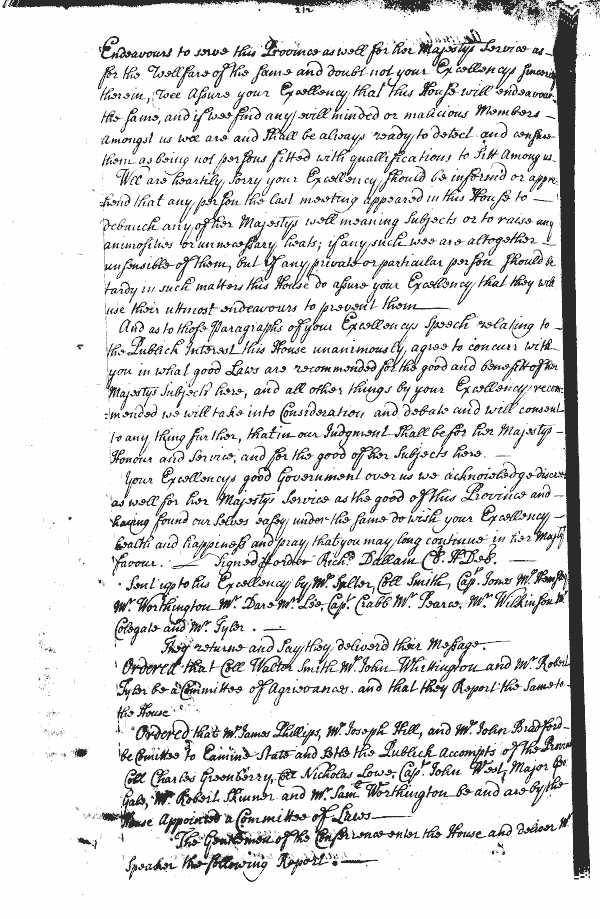 212
Endeavours to serve this Province as well for her Majestys Service as
for the Wellfare of the same and doubt not your Excellencys sincerity
therein, Wee assure your Excellency that this House will endeavour
the same, and if wee find any evill minded or malicious Members
amongst us wee are and shall be always ready to detect and censure
them as being not persons fitted with quallifications to sitt among us.
Wee are heartily sorry your Excellency should be informd or appre
hend that any person the last meeting appeared in this House to
debauch any of her Majestys well meaning Subjects or to raise any
animosities or unnecessary heats; if any such wee are altogether
unsensible of them, but if any private or particular person should be
tardy in such matters this House do assure your Excellency that they will
use their uttmost endeavours to prevent them
And as to those Paragraphs of your Excellencys Speech relating to
the Publick Interest this House unanimously, agree to concurr with
you in what good Laws are recommended for the good and benefitt of her
Majestys Subjects here, and all other things by your Excellency recom
mended we will take into Consideration and debate and will consent
to any thing further, that in our Judgment shall be for her Majestys
Honour and Service, and for the good of her Subjects here.
Your Excellencys good Government over us we acknowledge discreet
as well for her Majestys Service as the good of this Province and
having found our selves easey under the same do wish your Excellency
health and happiness and pray that you may long continue in her Majtys
favour. Signed p order Richd. Dallam Cl. H. Del.
Sent up to his Excellency by Mr. Coll Smith, Capt. Jones Mr.
Mr. Worthington Mr. Dare Mr. Lee, Capt. Crabb Mr. Pearce, Mr. Wilkinson Mr
Colegate and Mr. Tyler.
They returne and say they deliverd their Message.
Ordered that Coll Walter Smith Mr. John Whittington and Mr Robert
Tyler be a Committee of Agrievances. and that they Report the same to
the House
Ordered that Mr. James Phillips, Mr. Joseph Hill, and Mr. John Bradford
be Comittee to Examine State and Settle the Publick Accompts of the Province
Coll Charles Greenberry, Coll Nicholas Lowe, Capt. John West, Major
Gale, Mr. Robert Skinner and Mr. Saml Worthington be and are by the
House Appointed a Committee of Laws
The Gentlemen of the Conferrence enter the House and deliver Mr
Speaker the following Report.